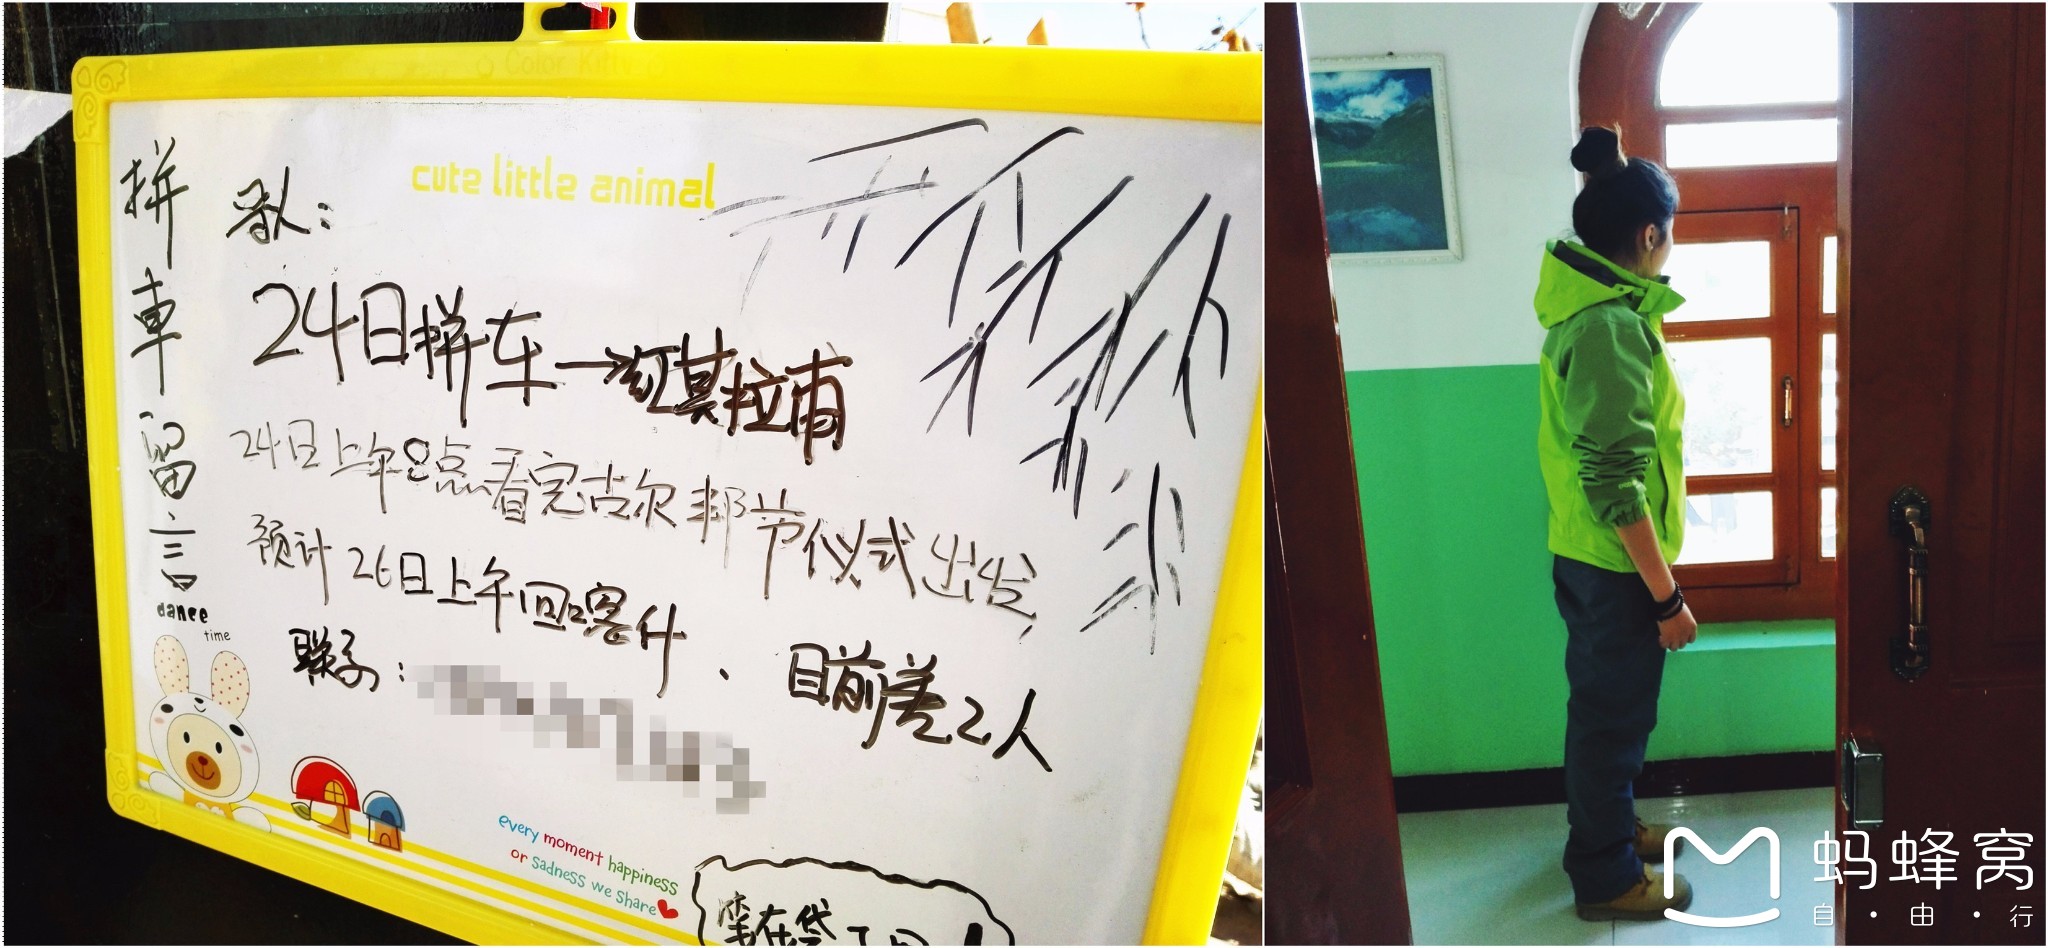 Color Kitty
cute little animal
拼車留言
24日拼车→
24日上午8点看完古尔邦节仪式出发,
预计26日上午回喀什
联系: 、目前差2人
dance
time
every moment happiness
or sadness we share
笔在袋
蚂蜂窝
自·由·行